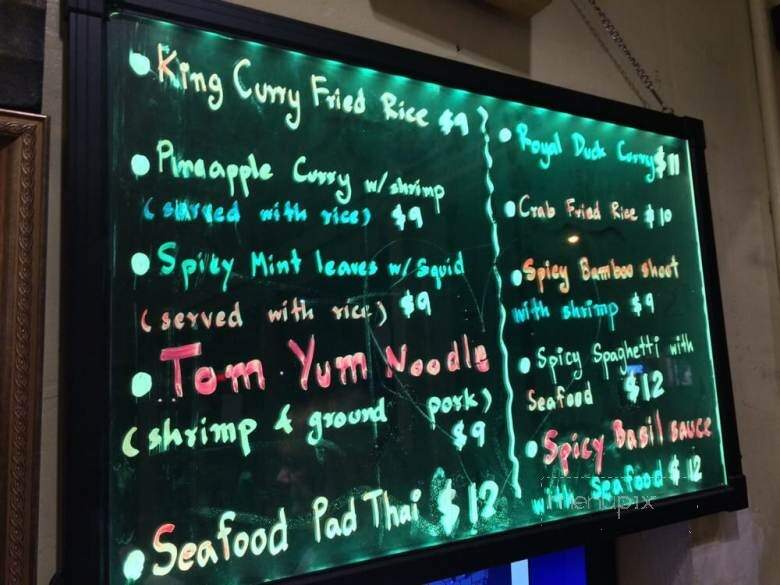 • King Curry Fried Rice $9
• Pineapple Curry w/shrimp
(served with rice) $9
• Spicy Mint leaves w/ Squid
(served with rice) $9
• Tom Yum Noodle
(shrimp & ground pork)
$9
• Seafood Pad Thai $12
• Royal Duck Curry $11
• Crab Fried Rice $10
• Spicy Bamboo shoot
with shrimp $9
• Spicy Spaghetti with
Seafood $12
• Spicy Basil sauce
with seafood $12
menupix